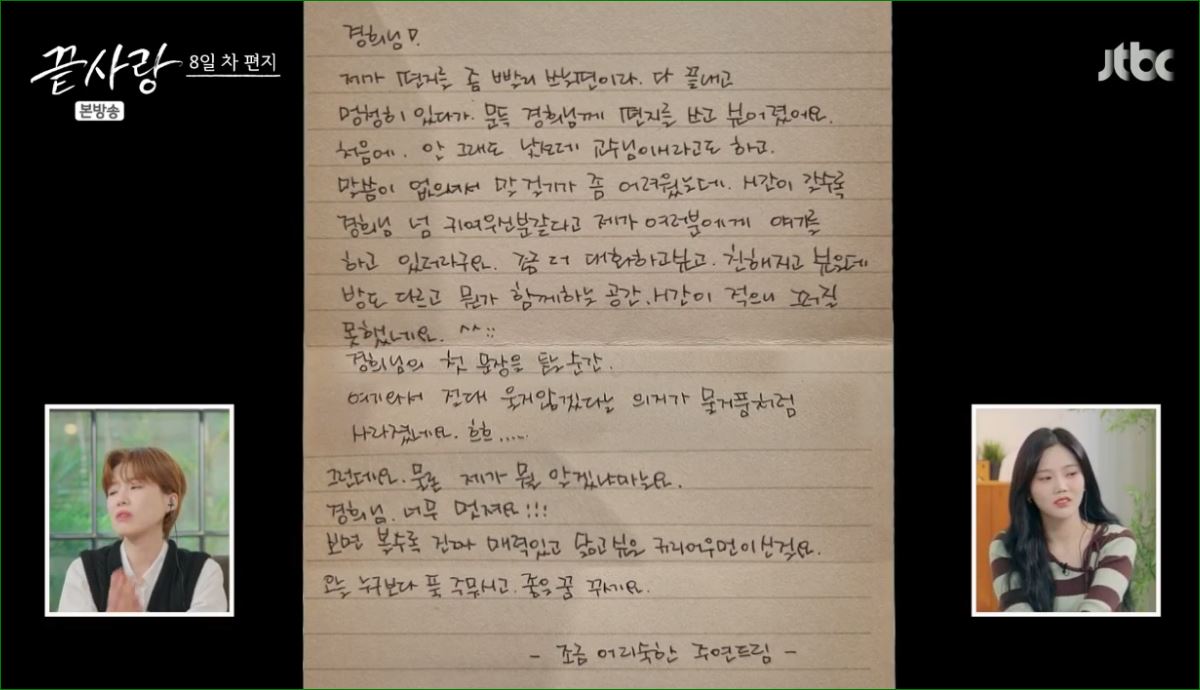 끝사랑
8일 차 편지
본방송
jtbc
경희님♡.
제가 편지를 좀 빨리 쓰는편이라. 다 끝내고
멍청히 있다가. 문득 경희님께 편지를 쓰고 싶어졌어요.
처음에. 안 그래도 낯선데 교수님이시라고도 하고.
말씀이 없으셔서 말 걸기가 좀 어려웠는데. 시간이 갈수록
경희님 넘 귀여우신분같다고 제가 여러분에게 얘기를
하고 있더라구요. 조금 더 대화하고싶고. 친해지고 싶은데
방도 다르고 뭔가 함께하는 공간.시간이 적으니 쉬이
못했네요. ^^;;
경희님의 첫 문장을 듣는순간.
여기와서 절대 울지않겠다는 의지가 물거품처럼
사라졌네요. 흐흐.....
그런데요. 물론 제가 뭘 알겠냐마는요.
경희님. 너무 멋져요!!!
보면 볼수록 진짜 매력있고 닮고싶을 커리어우먼이신걸요.
오늘 누구보다 푹 주무시고. 좋은꿈 꾸세요.
- 조금 어리숙한 주연드림 -